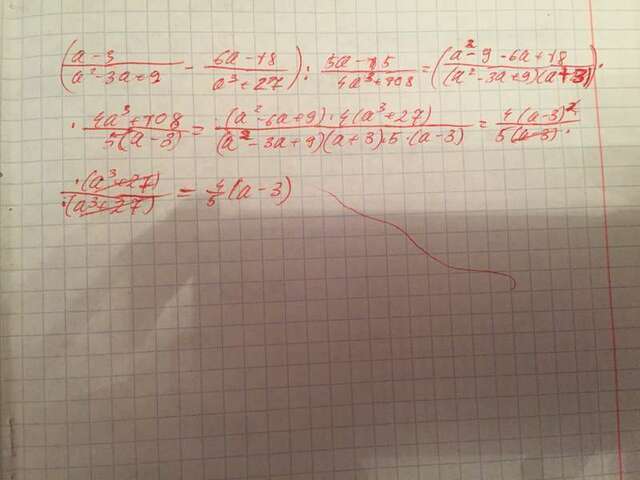 (a-3/a²-3a+9 - 6a-18/a³+27) : 5a-15/4a³+108 = (a²-9-6a+18/(a²-3a+9)(a+3)) ·
· 4a³+108/5(a-3) = (a²-6a+9)·4(a³+27)/(a²-3a+9)(a+3)·5·(a-3) = 4(a-3)²/5(a-3) ·
·(a³+27)/·(a³+27) = 4/5(a-3)